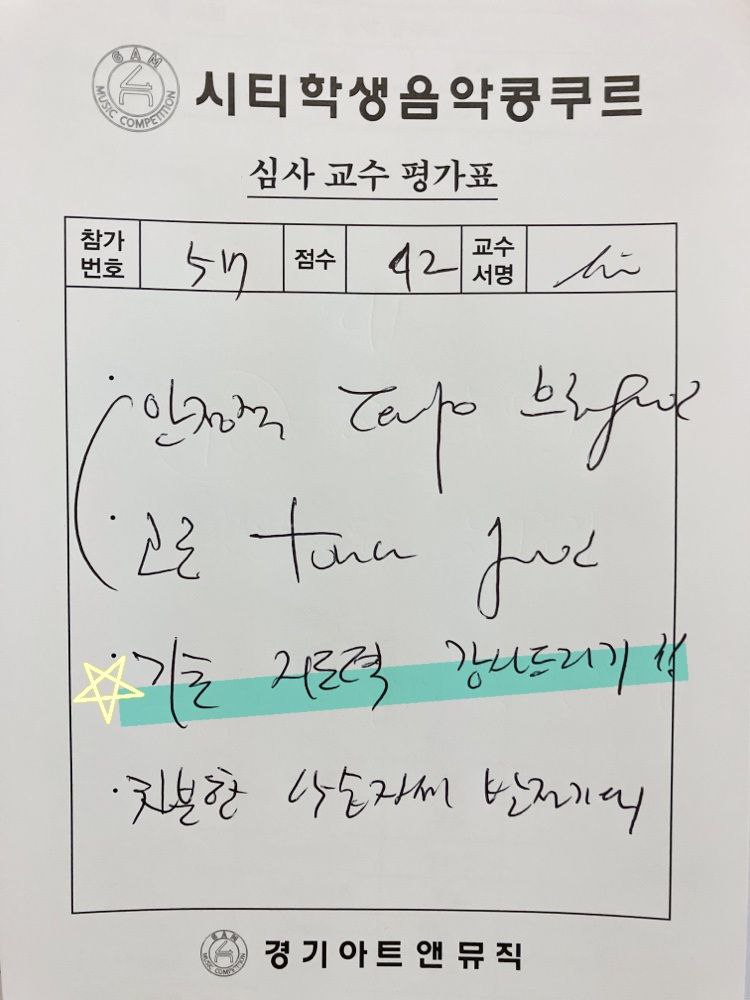 GAM
MUSIC COMPETITION
시티학생음악콩쿠르
심사 교수 평가표
참가 번호 57 점수 92 교수 서명
· 안정적 Tempo
· 고른 touch good
· 기초 지도력 감사드리기
· 차분한 연주자세 발전기대
GAM
MUSIC COMPETITION
경기아트앤뮤직